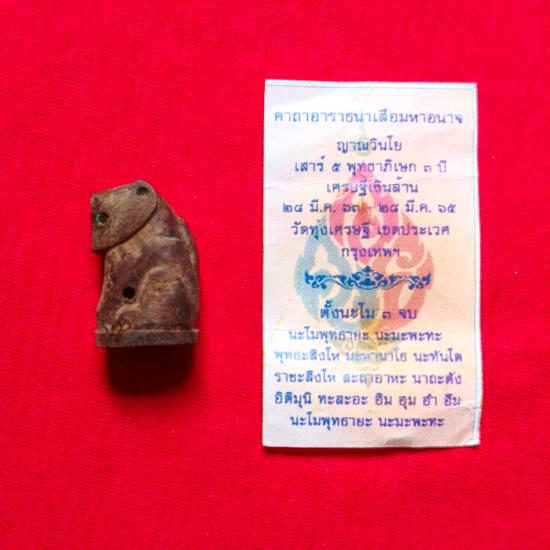 คาถาอาราธนาเสือมหาอนาจ
ญาณวินโย
เสาร์ ๕ พุทธาภิเษก ๓ ปี
เศรษฐีเงินล้าน
๒๘ มี.ค. ๖๓ - ๒๘ มี.ค. ๖๕
วัดทุ่งเศรษฐี เขตประเวศ
กรุงเทพฯ
ตั้งนะโม ๓ จบ
นะโมพุทธายะ นะมะพะทะ
พุทธะสิงโห มะหานาโธ นะทันโต
ราชะสิงโห ละถาอาหะ นาถะตัง
อิติมุนิ ทะสะอะ อิม อุม ฮำ ฮึม
นะโมพุทธายะ นะมะพะทะ